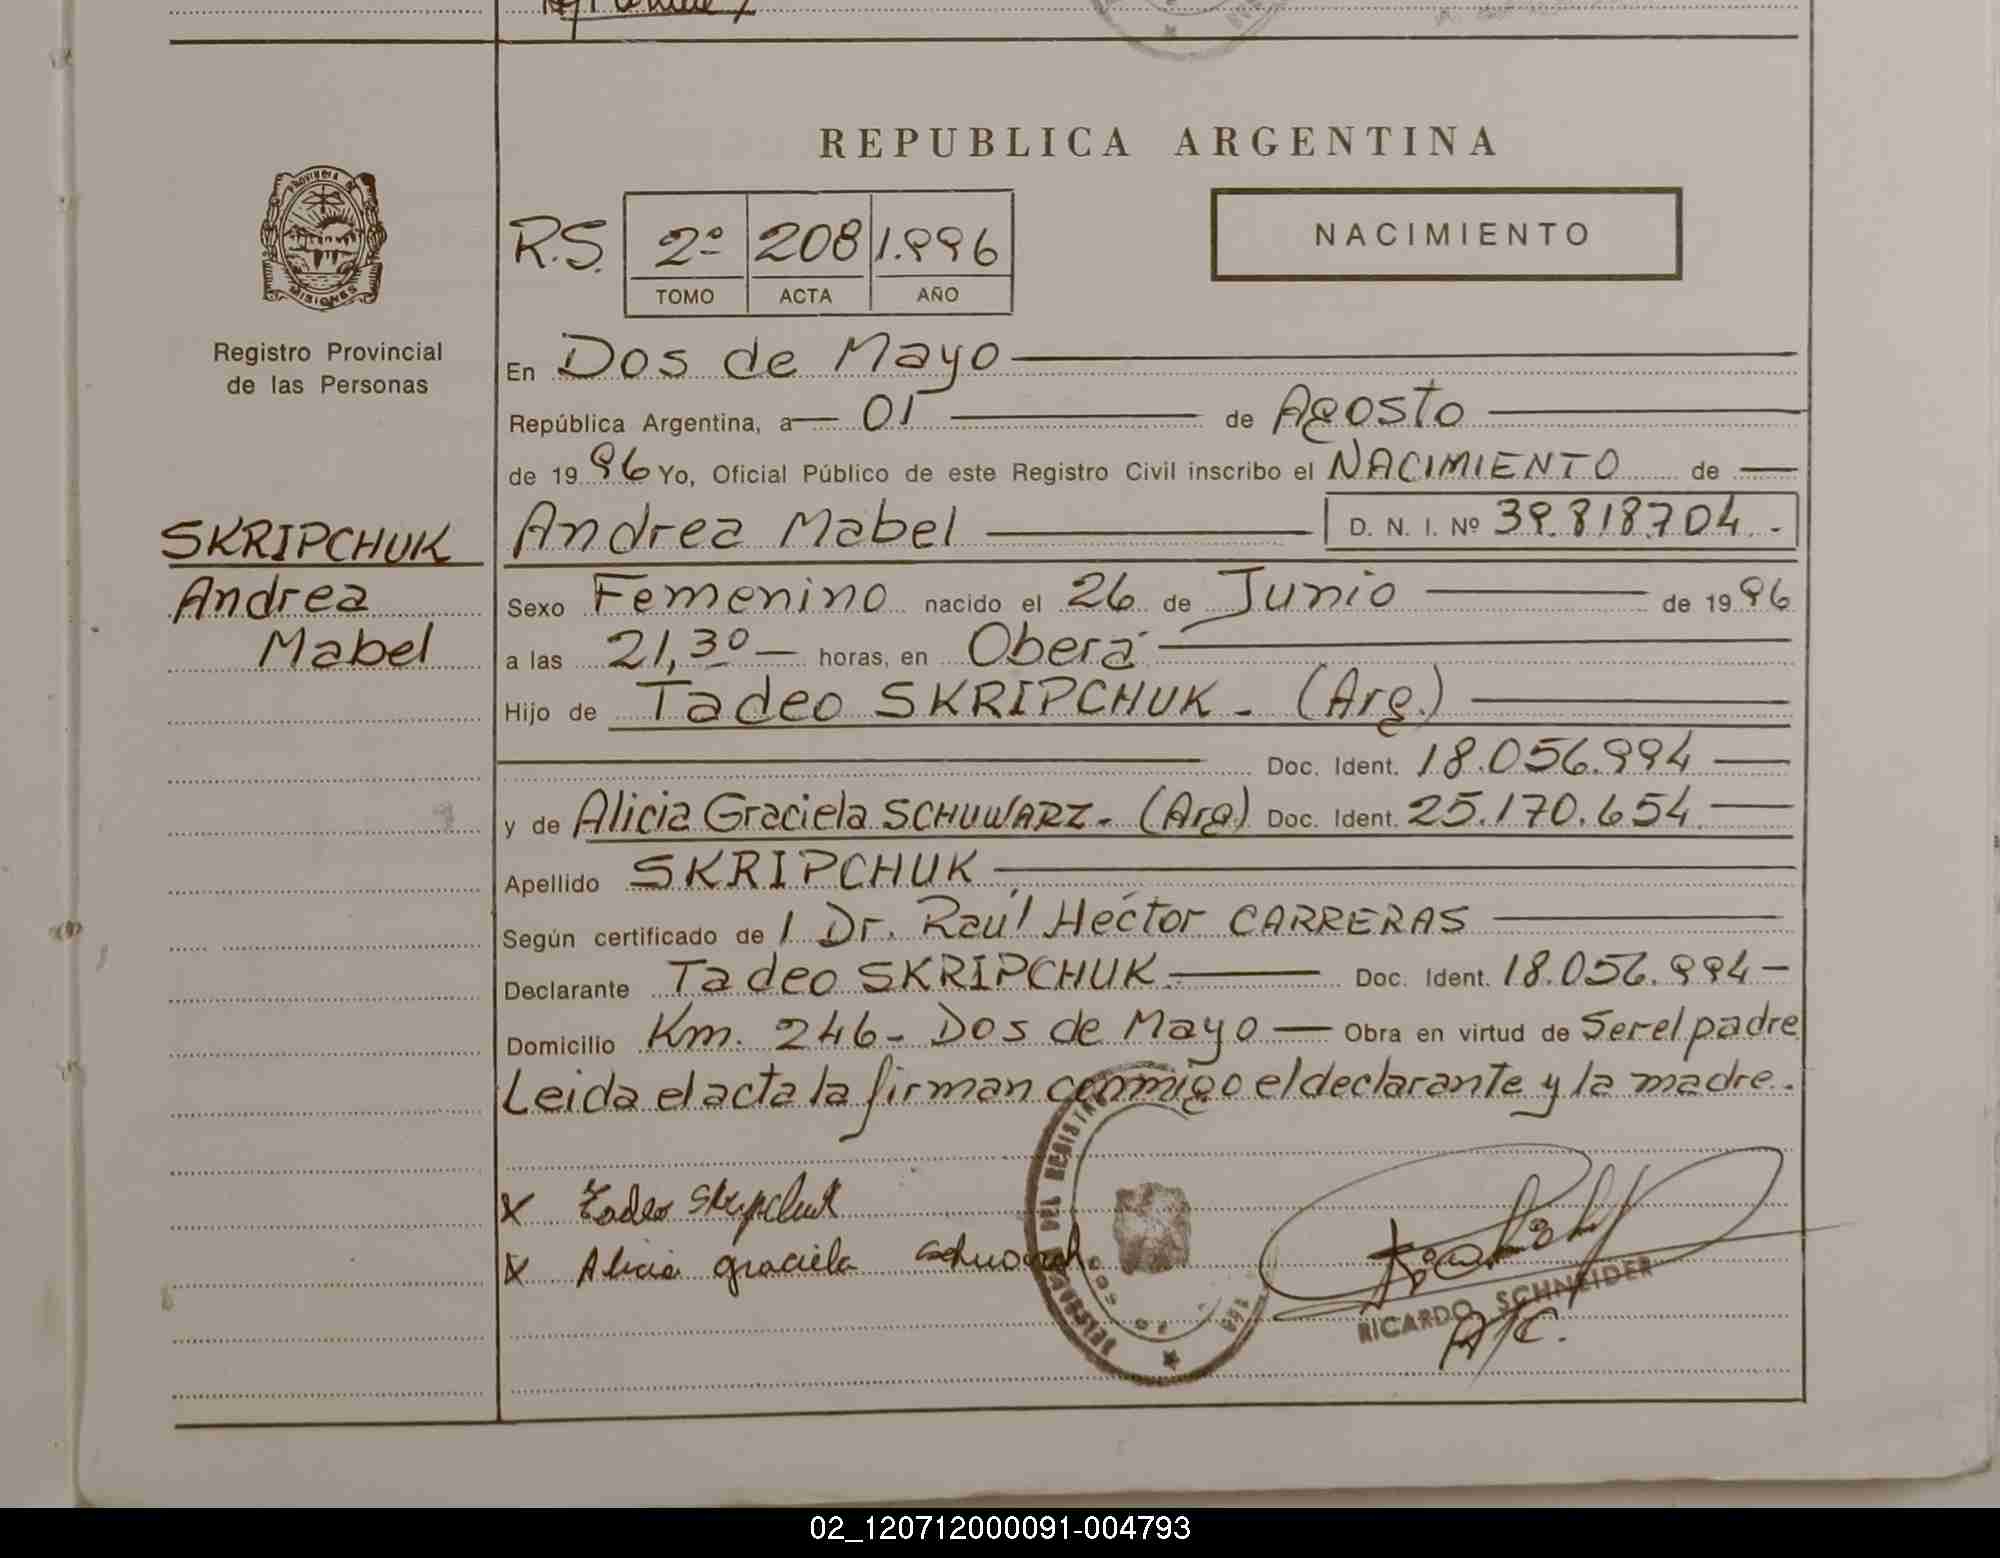 REPUBLICA ARGENTINA
PROVINCIA DE
MISIONES
Registro Provincial
de las Personas
R.S. 2º 208 1.996
TOMO ACTA AÑO
NACIMIENTO
En Dos de Mayo
República Argentina, a 01 de Agosto
de 1996 Yo, Oficial Público de este Registro Civil inscribo el NACIMIENTO de
SKRIPCHUK
Andrea
Mabel
Andrea Mabel D. N. I. Nº 39.818.704.-
Sexo Femenino nacido el 26 de Junio de 1996
a las 21,30 horas, en Oberá
Hijo de Tadeo SKRIPCHUK - (Arg.)
Doc. Ident. 18.056.994
y de Alicia Graciela SCHUWARZ - (Arg) Doc. Ident. 25.170.654
Apellido SKRIPCHUK
Según certificado de l Dr. Raúl Héctor CARRERAS
Declarante Tadeo SKRIPCHUK Doc. Ident. 18.056.994
Domicilio Km. 246 - Dos de Mayo Obra en virtud de Ser el padre
Leida el acta la firman conmigo el declarante y la madre.
X Tadeo Skripchuk
X Alicia graciela
DEL REGISTR
RICARDO SCHNEIDER
02_120712000091-004793